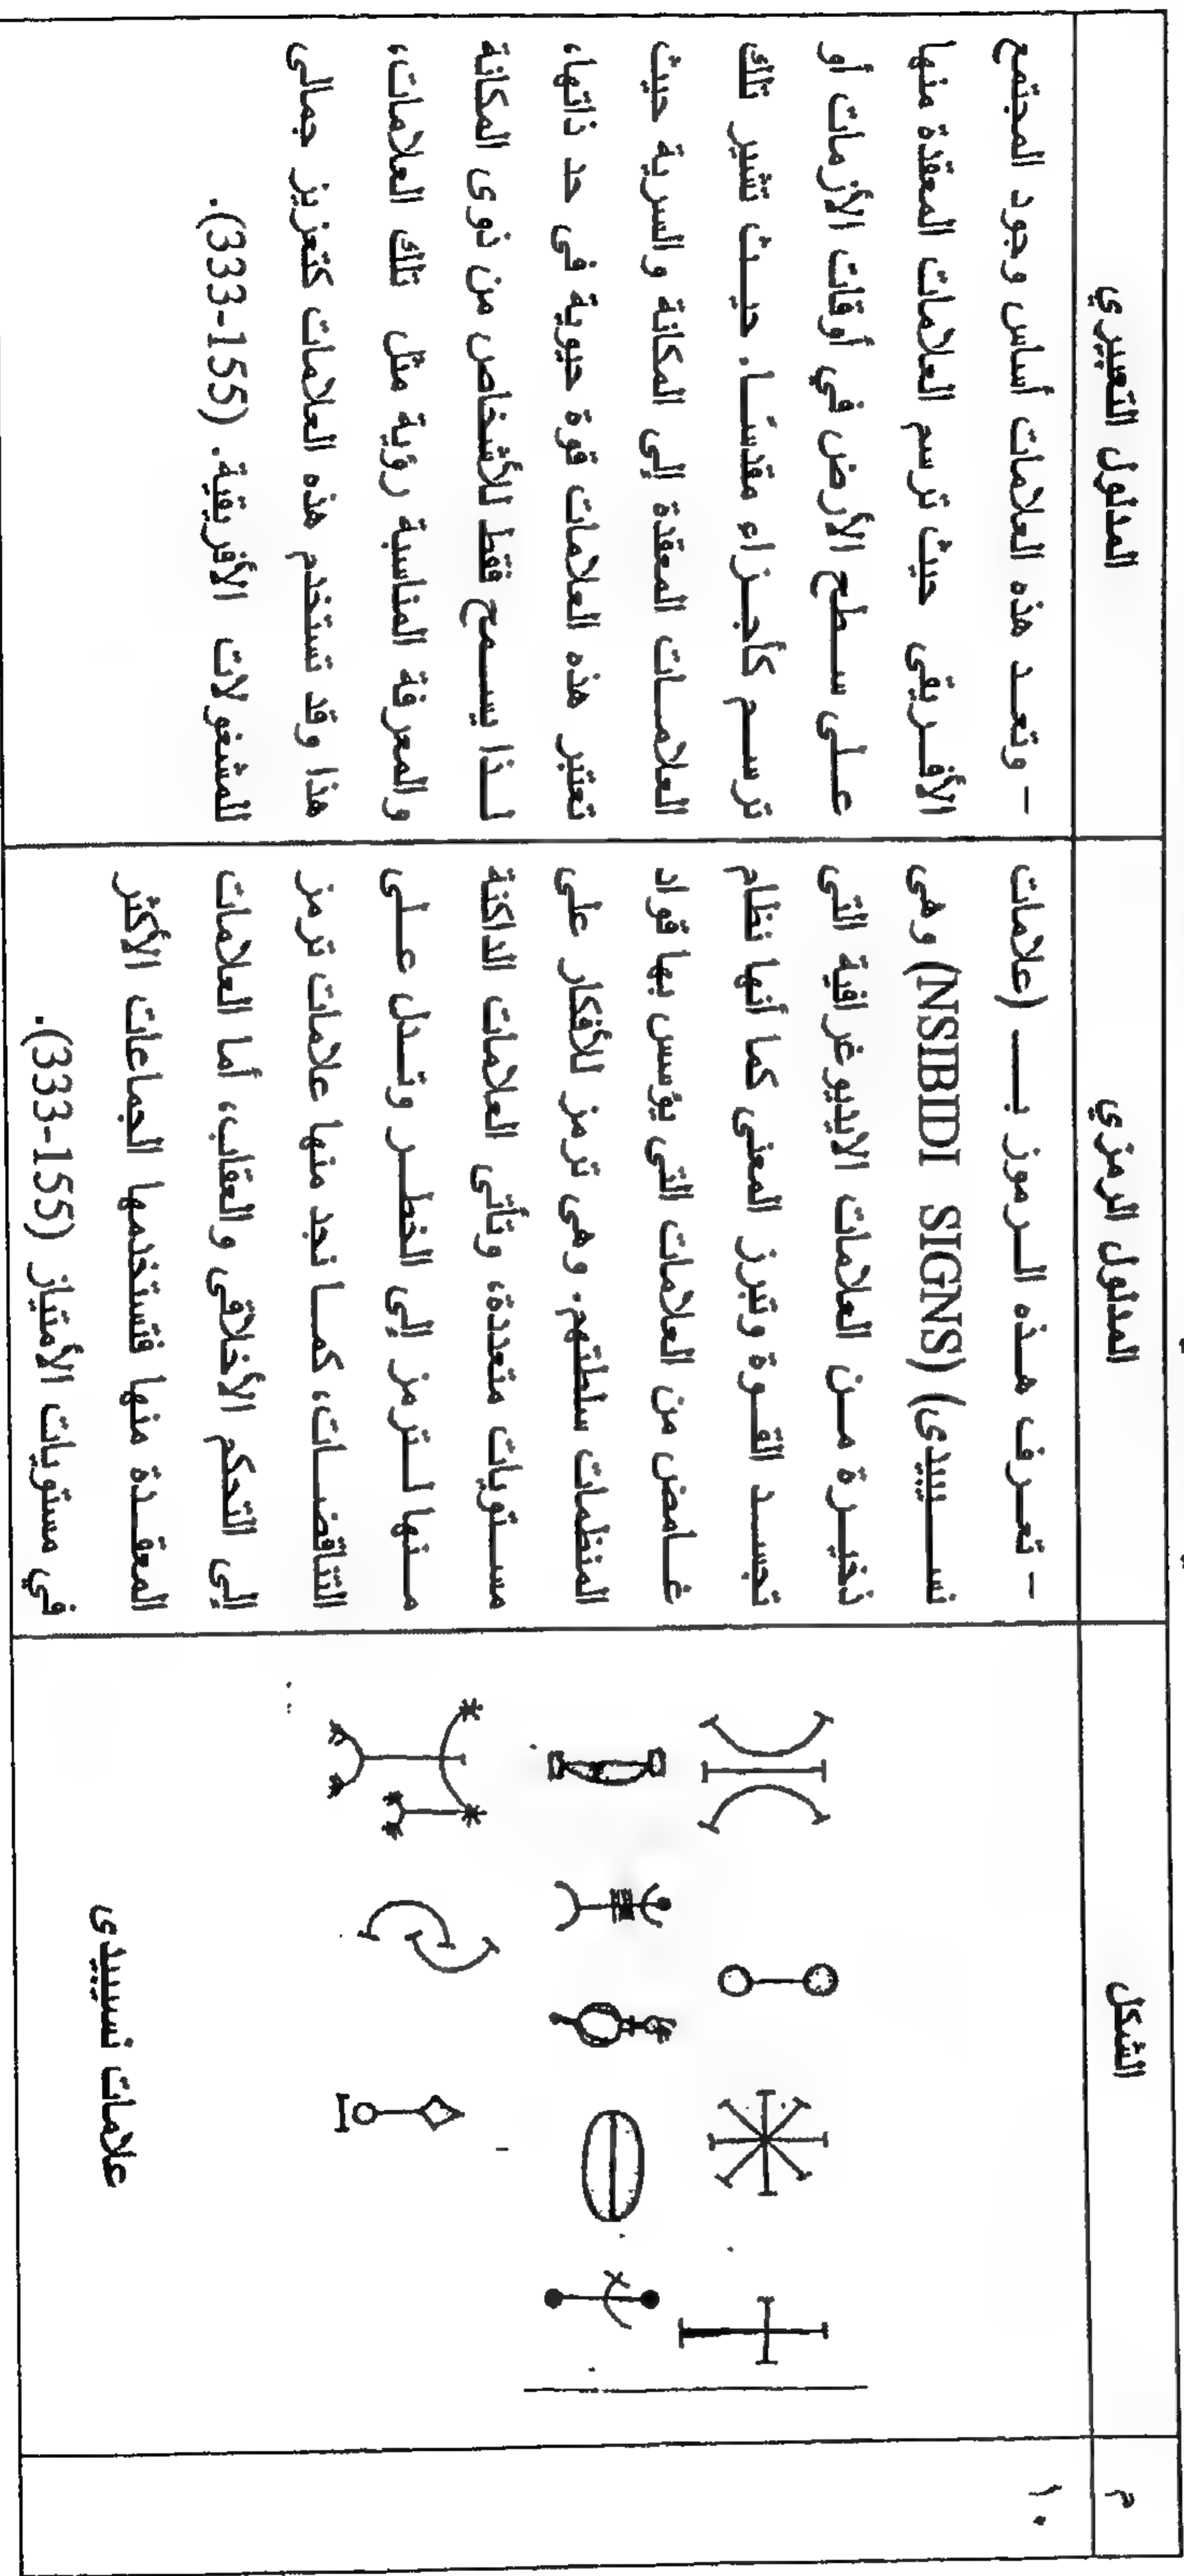 م
الشكل
المدلول الرمزي
المدلول التعبيري
١٠
علامات نسيبيدى
– تعرف هذه الرموز بـ (علامات
نسيبيدى) (NSIBIDI SIGNS) وهى
ذخيرة من العلامات الايديوغرافية التى
تجسد القوة وتبرز المعنى كما أنها نظام
غامض من العلامات التى يؤسس بها قواد
المنظمات سلطتهم. وهى ترمز للأفكار على
مستويات متعددة، وتأتى العلامات الداكنة
منها لترمز إلى الخطر وتدل على
التناقضات، كما نجد منها علامات ترمز
إلى التحكم الأخلاقى والعقاب، أما العلامات
المعقدة منها فتستخدمها الجماعات الأكثر
في مستويات الأمتياز (155-333).
– وتعد هذه العلامات أساس وجود المجتمع
الأفريقى حيث ترسم العلامات المعقدة منها
على سطح الأرض في أوقات الأزمات أو
ترسم كأجزاء مقدسًا. حيث تشير تلك
العلامات المعقدة إلى المكانة والسرية حيث
تعتبر هذه العلامات قوة حيوية فى حد ذاتها،
لذا يسمح فقط للأشخاص من ذوى المكانة
والمعرفة المناسبة رؤية مثل تلك العلامات،
هذا وقد تستخدم هذه العلامات كتعزيز جمالى
للمشغولات الأفريقية. (155-333).